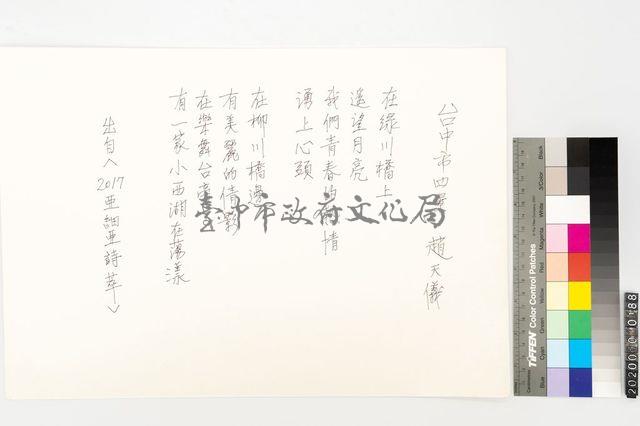 台中市四 趙天儀
在綠川橋上
遙望月亮
我們青春的 情
湧上心頭
在柳川橋邊
有美麗的倩影
在樂舞台
有一家小西湖在蕩漾
出自〈2017亞細亞詩萃〉
臺中市政府文化局
Black
3/Color
White
Magenta
Red
Yellow
Green
Cyan
Blue
TIFFEN Color Control Patches